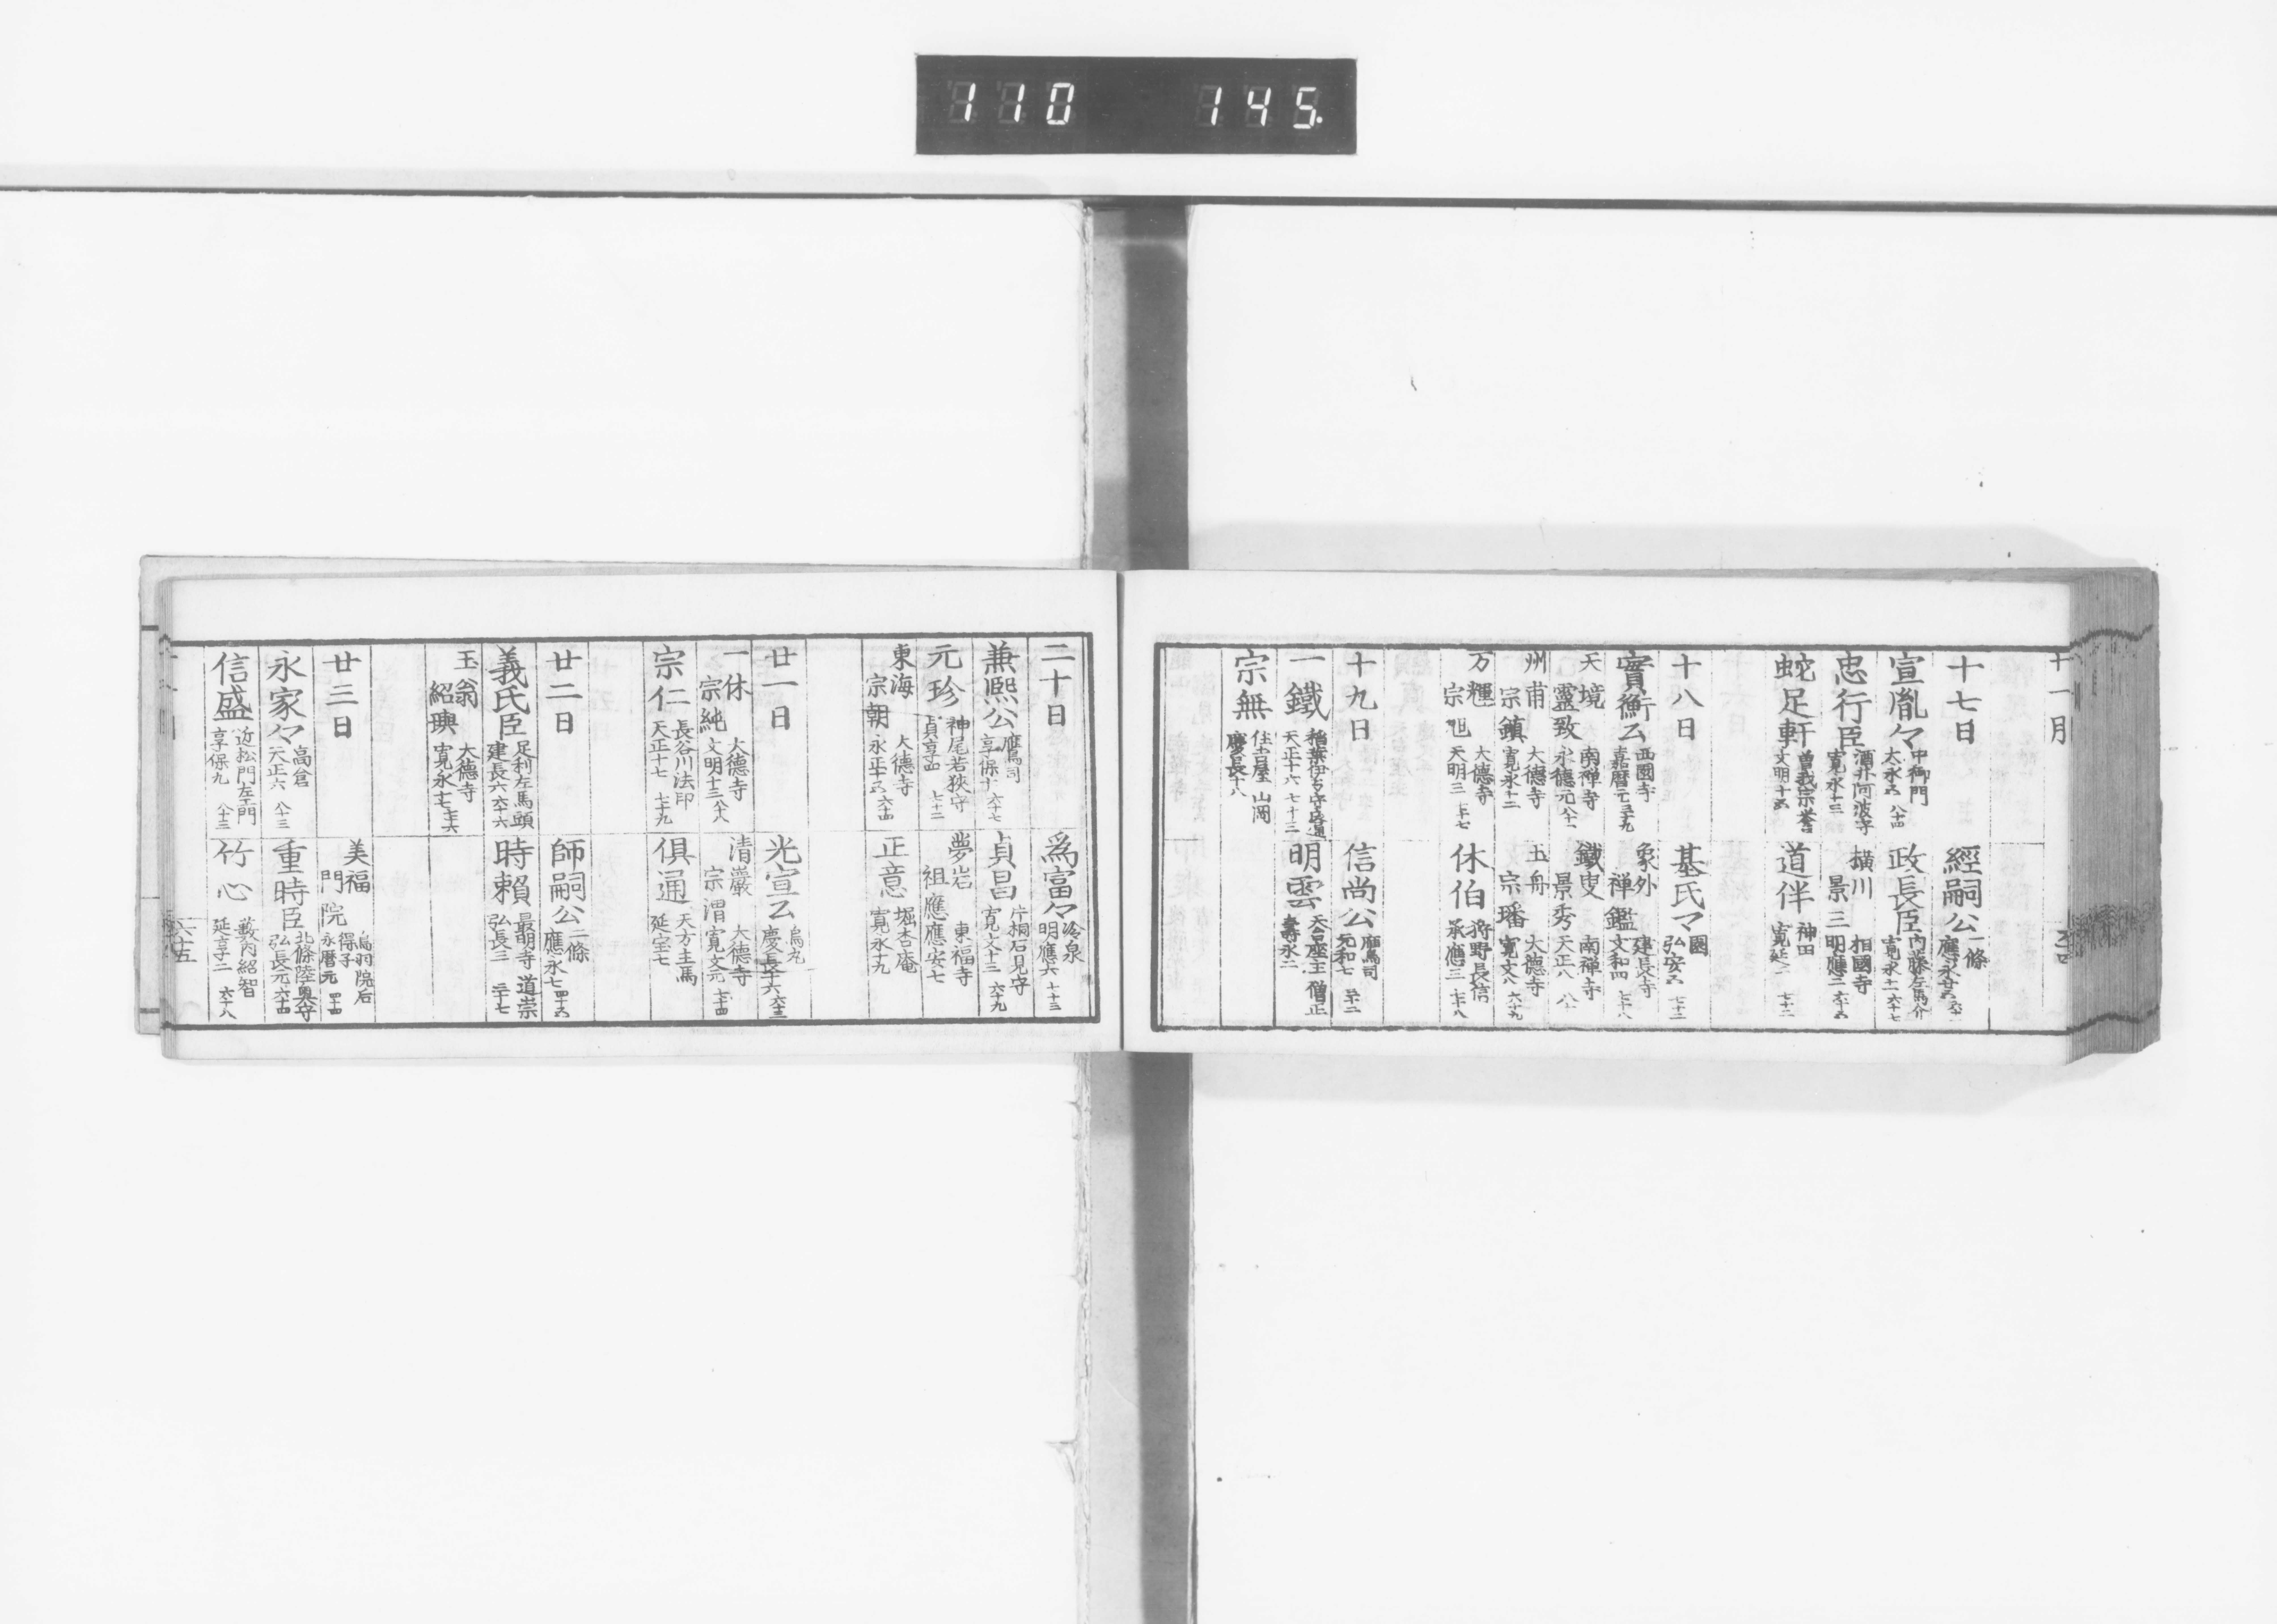 110 145.
十一月
十七日
經嗣公 一條
應永廿五
宣胤々 中御門
大永五 八十四
政長臣 内藤左馬介
寛永十一 六十七
忠行臣 酒井阿波守
寛永十三
横川
景三 相國寺
明應二 六十五
蛇足軒 曽我宗誉
文明十五
道伴 神田
寛延二 七十二
十八日
基氏マ 園
弘安五 七十二
實衡公 西園寺
嘉暦元 三十九
象外
禅鑑 建長寺
文和四 七十八
天境
靈致 南禅寺
永德元 八十一
鐵叟
景秀 南禅寺
天正八
州甫
宗鎮 大德寺
寛永十二
玉舟
宗璠 大德寺
寛文八 六十九
万穪
宗旭 大德寺
天明三 七十七
休伯 狩野長信
承應三 七十八
十九日
信尚公 鷹司
元和七 三十二
一鐵 稲葉伊予守良通
天正十六 七十三
明雲 天台座主 僧正
壽永二
宗無 住吉屋 山岡
慶長十八
二十日
爲富々 冷泉
明應六 七十三
兼熙公 鷹司
享保十 六十七
貞昌 片桐石見守
寛文十三 六十九
元珍 神尾若狭守
貞享四 七十二
夢岩
祖應 東福寺
應安七
東海
宗朝 大德寺
永正十五 六十四
正意 堀杏庵
寛永十九
廿一日
光宣公 烏丸
慶長十六 六十三
一休
宗純 大德寺
文明十三 八十八
清巖
宗渭 大德寺
寛文元 七十四
宗仁 長谷川法印
天正十七 七十九
俱通 天方主馬
延宝七
廿二日
師嗣公 二條
應永七 四十五
義氏臣 足利左馬頭
建長六 六十六
時頼 最明寺 道崇
弘長三 三十七
玉翁
紹璵 大德寺
寛永十七 七十六
廿三日
美福
門院 鳥羽院后
得子
永暦元 四十四
永家々 高倉
天正六 八十三
重時臣 北條陸奥守
弘長元 六十四
信盛 近松門左エ門
享保九 八十三
竹心 藪内紹智
延享二 六十八
六十五